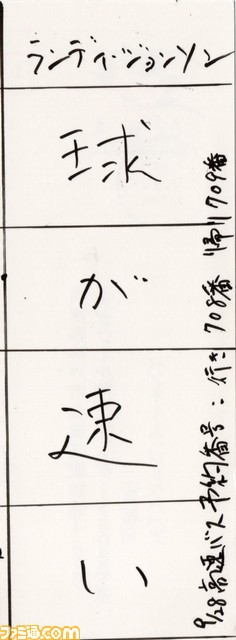 ランディ・ジョンソン
球
が
速
い
9/28高速バス予約番号:行き 708番 帰り709番
ファミ通.com